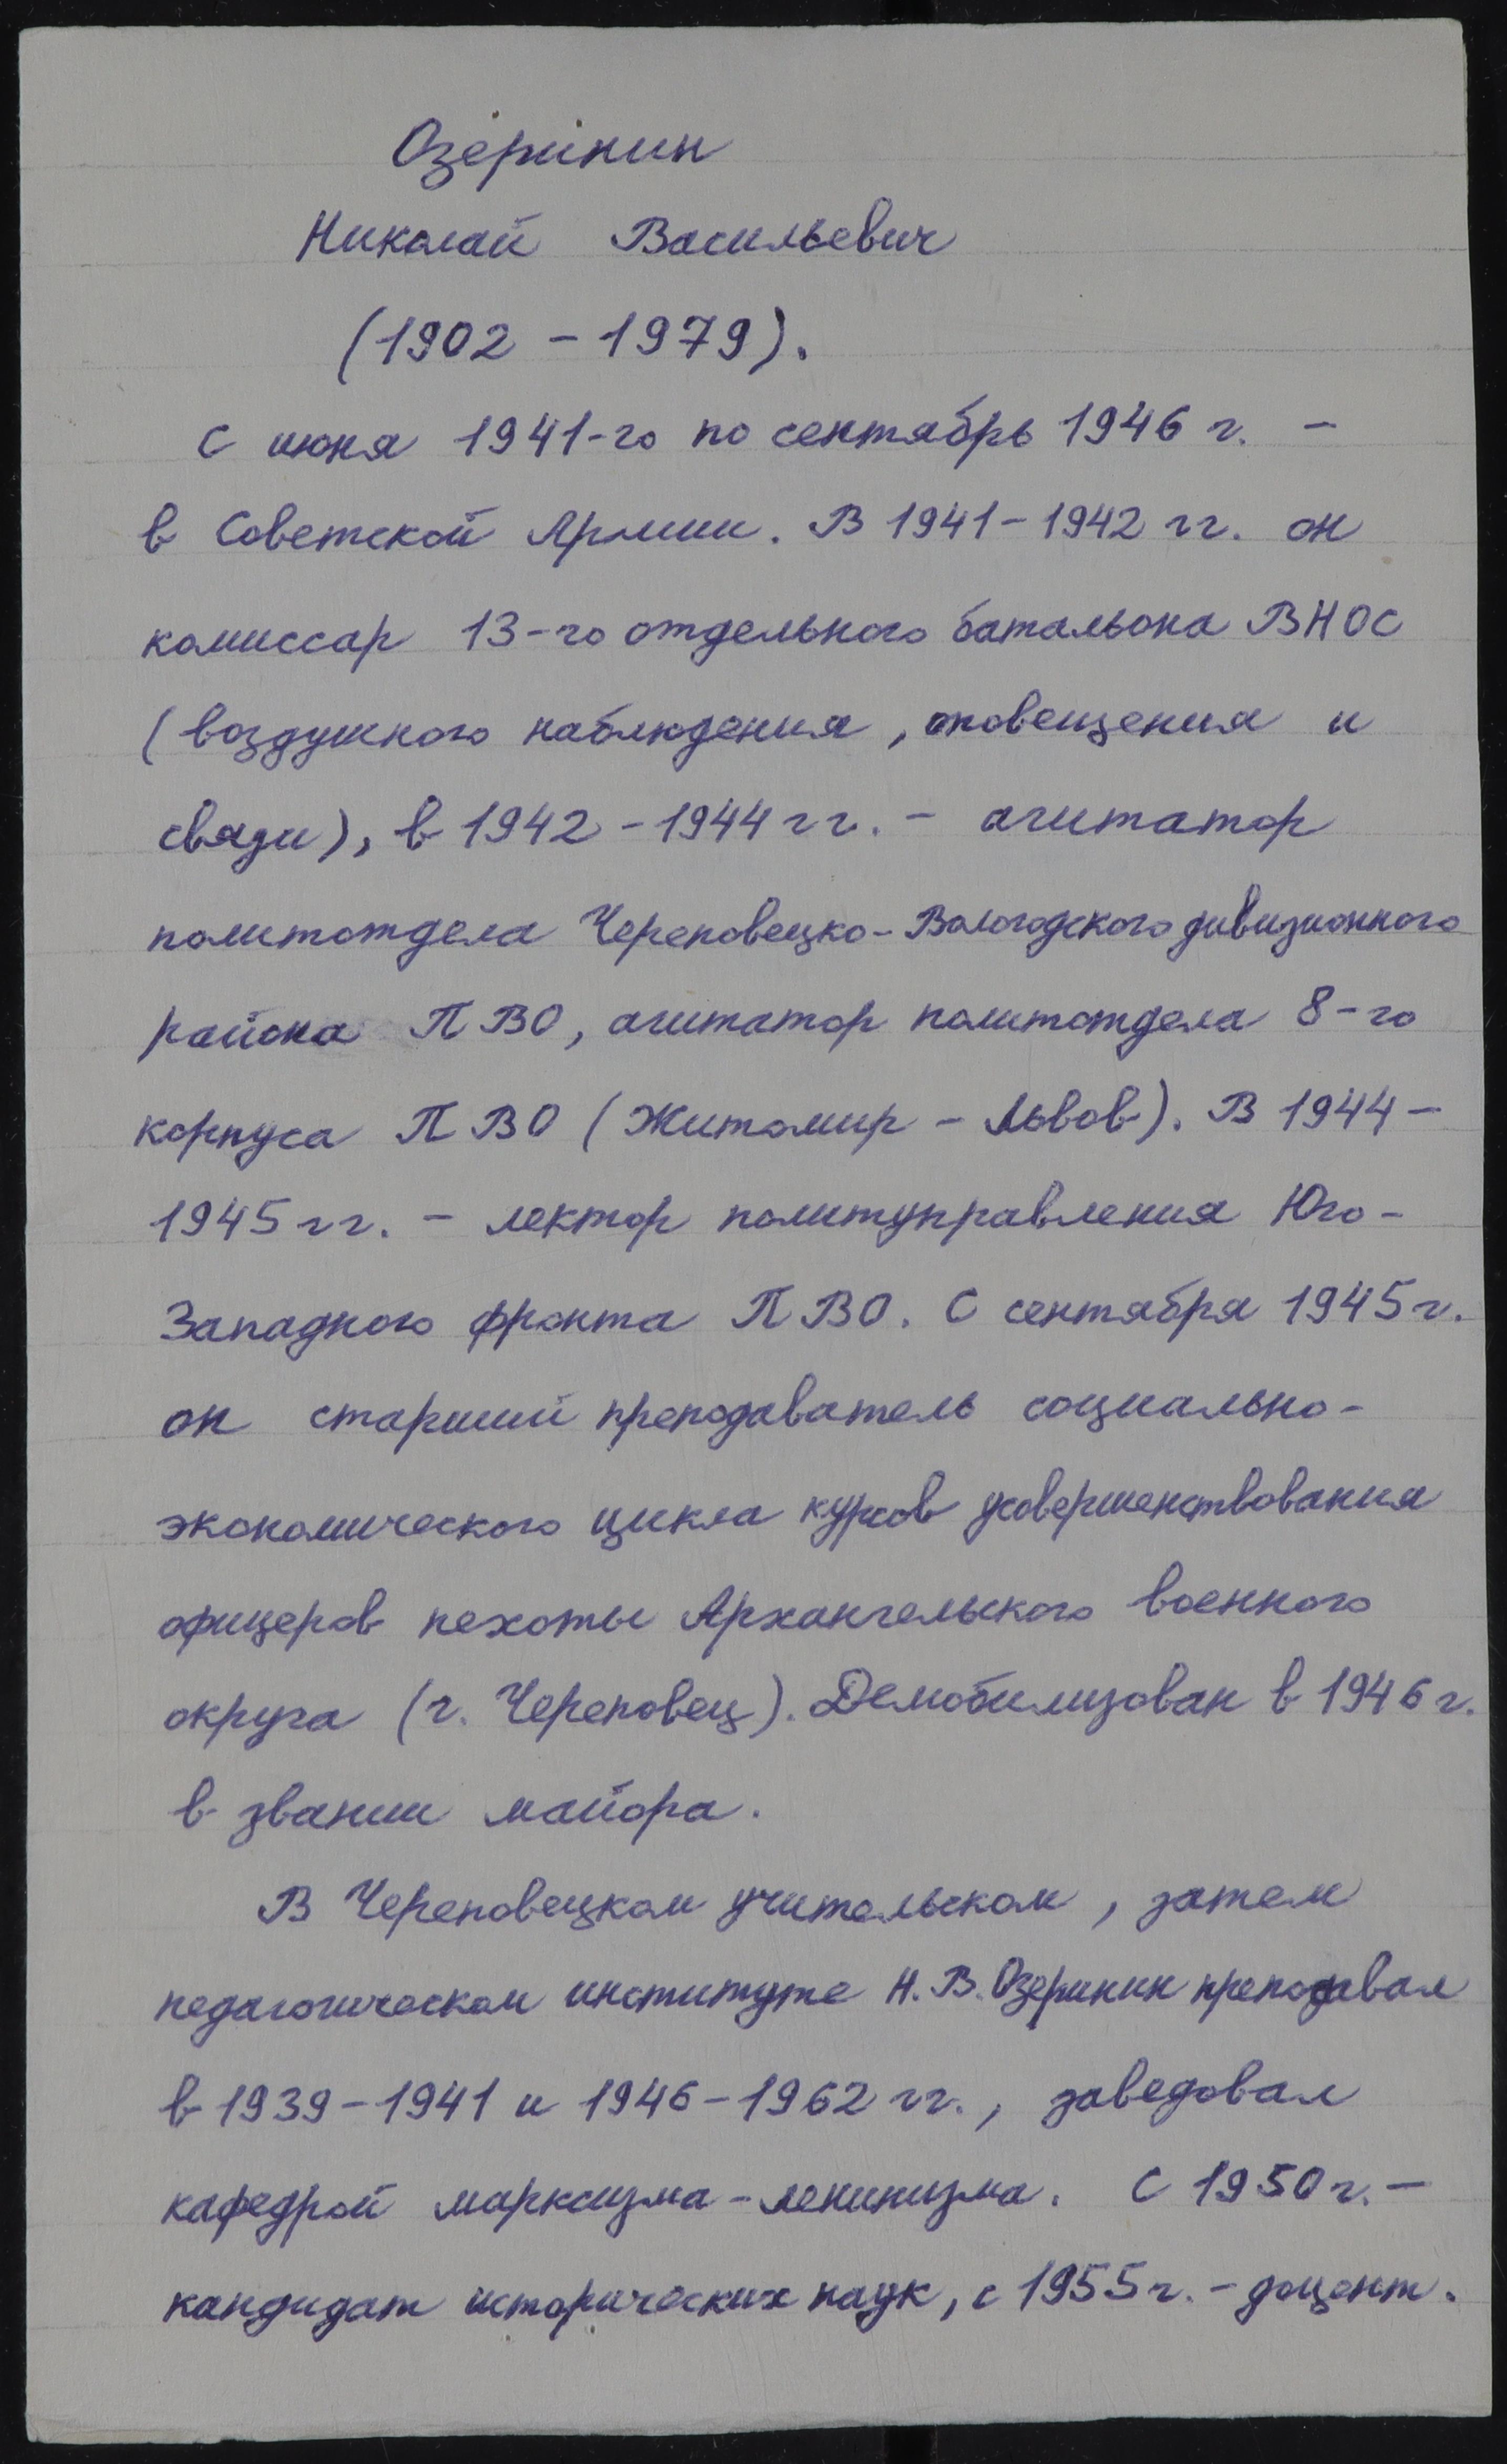 Озеринин
Николай Васильевич
(1902 - 1979).
С июня 1941-го по сентябрь 1946 г. -
в Советской Армии. В 1941-1942 гг. он
комиссар 13-го отдельного батальона ВНОС
(воздушного наблюдения, оповещения и
связи), в 1942-1944 гг. - агитатор
политотдела Череповецко-Вологодского дивизионного
района ПВО, агитатор политотдела 8-го
корпуса ПВО (Житомир - Львов). В 1944-
1945 гг. - лектор политуправления Юго-
Западного фронта ПВО. С сентября 1945 г.
он старший преподаватель социально-
экономического цикла курсов усовершенствования
офицеров пехоты Архангельского военного
округа (г. Череповец). Демобилизован в 1946 г.
в звании майора.
В Череповецком учительском, затем
педагогическом институте Н.В. Озеринин преподавал
в 1939-1941 и 1946-1962 гг., заведовал
кафедрой марксизма-ленинизма. С 1950 г. -
кандидат исторических наук, с 1955 г. - доцент.